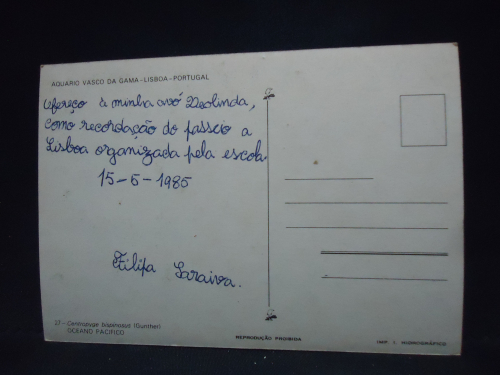 AQUARIO VASCO DA GAMA-LISBOA-PORTUGAL
Ofereço à minha avó Deolinda,
como recordação do passeio a
Lisboa organizada pela escola.
15-5-1985
Filipa Saraiva.
27-Centropyge bispinosus (Gunther)
OCEANO PACIFICO
REPRODUÇÃO PROIBIDA
IMP. I. HIDROGRÁFICO